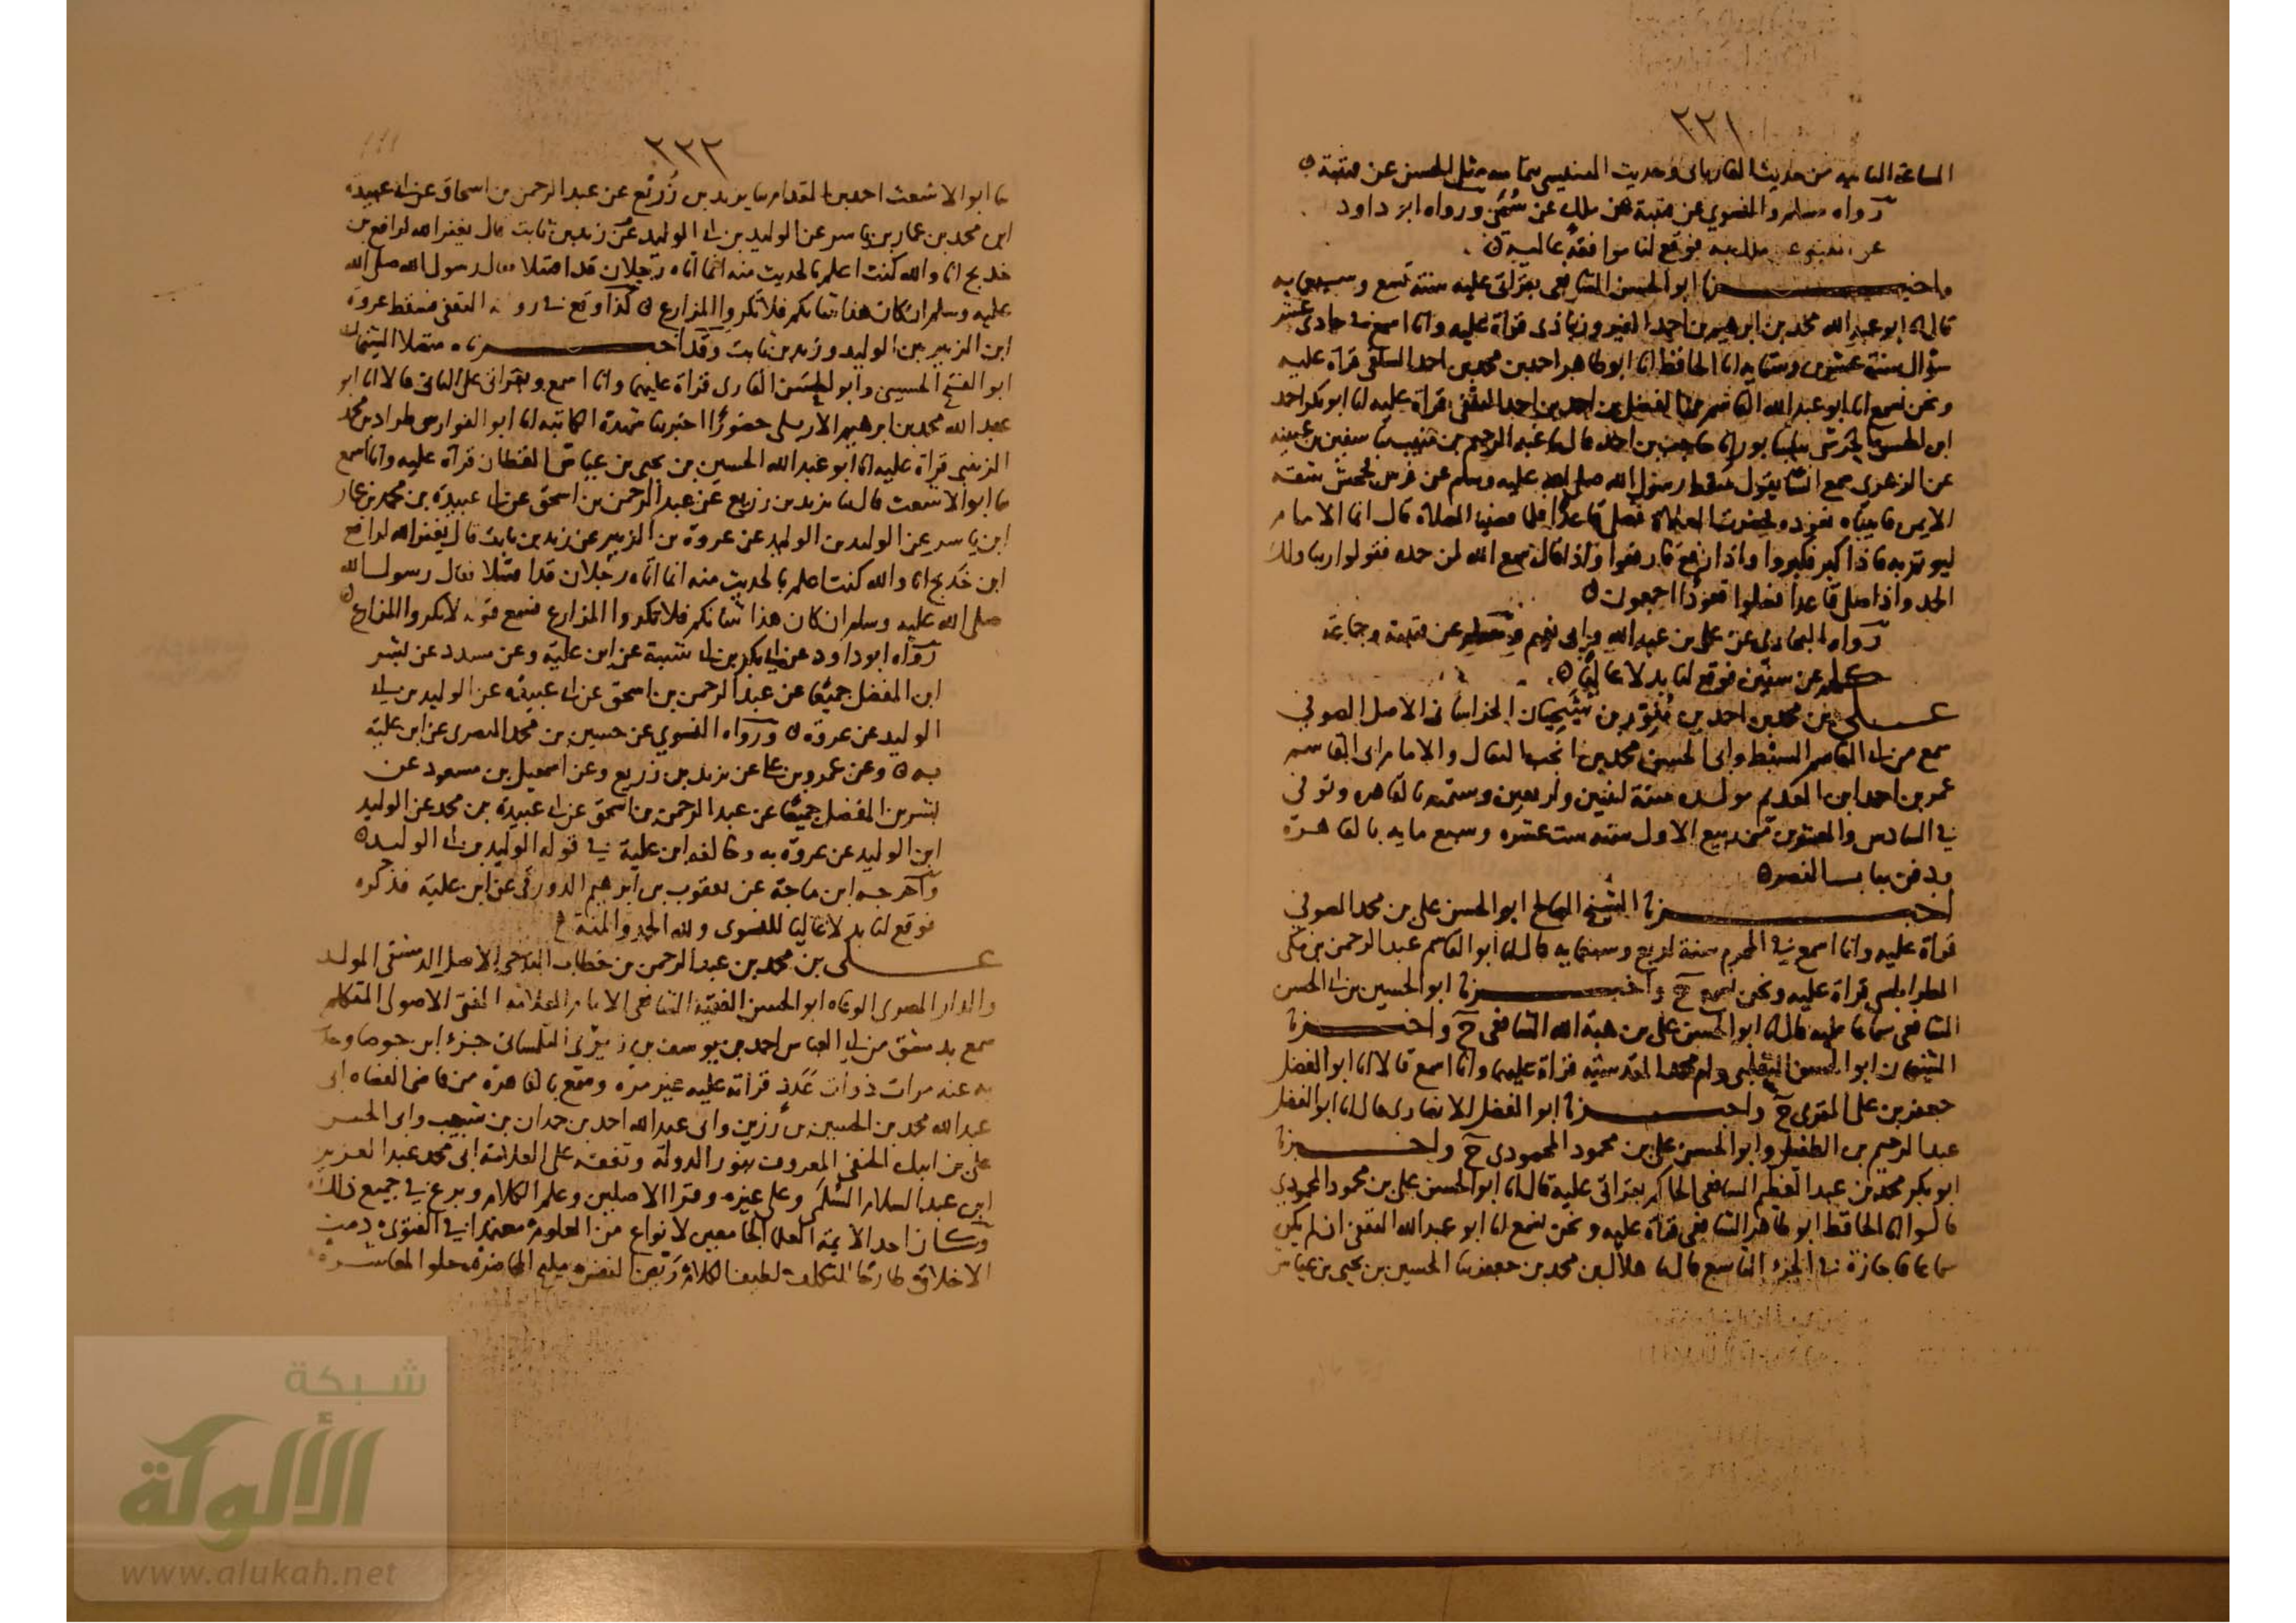 ٢٢١
الساعة الثانية من حديث الفاريابى وحديث
رواه مسلم والنسوي عن قتيبة عن ملك عن سُمَيّ ورواه ابو داود
عن القعنبى عن ملك به فوقع لنا موافقة عالية ٥
واخبرنا ابو الحسن الشافعى بقراتى عليه سنة تسع وسبعمايه
قال انا ابو عبد الله محمد بن ابرهيم بن احمد الفيروزباذى قراة عليه وانا اسمع فى حادى عشر
شوال سنة عشرين وستمايه انا الحافظ انا ابو طاهر احمد بن محمد بن احمد السلفى قراة عليه
ونحن نسمع انا ابو عبد الله القاسم بن الفضل بن احمد بن احمد الثقفى قراة عليه انا ابو بكر احمد
ابن الحسن الحرشى بنيسابور انا حاجب بن احمد قال نا عبد الرحيم بن منيب نا سفين بن عيينه
عن الزهرى سمع انسا يقول سقط رسول الله صلى الله عليه وسلم عن فرس فجحش شقه
الايمن فاتيناه نعوده فحضرت الصلاة فصلى قاعدًا فلما قضينا الصلاة قال انما الامام
ليوتم به فاذا كبر فكبروا واذا ركع فاركعوا واذا قال سمع الله لمن حمده فقولوا ربنا ولك
الحمد واذا صلى قاعدا فصلوا قعودًا اجمعون ٥
رواه البخارى عن على بن عبد الله وابى نعيم ومسلم عن قتيبة وجماعة
كلهم عن سفين فوقع لنا بدلا عاليًا ٥
على بن محمد بن احمد بن الخراسانى الاصل الصوفي
سمع من ابى القاسم السبط وابى الحسن محمد بن انجب النعال والامام ابى القاسم
عمر بن احمد ابن العديم مولده سنة اثنين واربعين وستمئه بالقاهره وتوفي
في السادس والعشرين من ربيع الاول سنه ست عشره وسبع مايه بالقاهرة
ودفن بباب النصر ٥
اخبرنا الشيخ الصالح ابو الحسن على بن محمد الصوفي
قراة عليه وانا اسمع في المحرم سنة اربع وسبعمايه قال انا ابو القاسم عبد الرحمن بن مكى
الطرابلسى قراة عليه ونحن نسمع ح واخبرنا ابو الحسين بن ابى الحسن
الشافعى سماعا عليه قال انا ابو الحسن على بن هبة الله الشافعى ح واخبرنا
الشيخان ابو الحسن الثعلبى وام محمد المقدسيه قراة عليهما وانا اسمع قالا انا ابو الفضل
جعفر بن على المقرى ح واخبرنا ابو الفضل الانصارى قال انا ابو الفضل
عبد الرحيم بن الطفيل وابو الحسن على بن محمود المحمودى ح واخبرنا
ابو بكر محمد بن عبد العظيم الشافعى الحاكم بقراتى عليه قال انا ابو الحسن على بن محمود المحمودي
قالوا انا الحافظ ابو طاهر الشافعى قراة عليه ونحن نسمع انا ابو عبد الله الثقفى ان لم يكن
سماعا فاجازة فى الجزء التاسع قال نا هلال بن محمد بن جعفر نا الحسين بن يحيى بن عياش
٢٢٢
نا ابو الاشعث احمد بن المقدام نا يزيد بن زُريع عن عبد الرحمن بن اسحاق عن ابى عبيدة
ابن محمد بن عمار بن ياسر عن الوليد بن ابى الوليد عن زيد بن ثابت قال يغفر الله لرافع بن
خديج انا والله كنت اعلم بالحديث منه انما اتاه رجلان قد اقتتلا فقال رسول الله صلى الله
عليه وسلم ان كان هذا شانكم فلا تكروا المزارع ٥ كذا وقع فى رواية الثقفى فسقط عروة
ابن الزبير بين الوليد وزيد بن ثابت وقد اخبرناه متصلا الشيخان
ابو الفتح الحسينى وابو الحسن القارى قراة عليهما وانا اسمع وبقراتى على الثانى قالا انا ابو
عبد الله محمد بن ابرهيم الاربلى حضورًا اخبرتنا شهدة الكاتبه انا ابو الفوارس طراد بن محمد
الزينبى قراة عليه انا ابو عبد الله الحسين بن يحيى بن عياش القطان قراة عليه وانا اسمع
نا ابو الاشعث قال نا يزيد بن زريع عن عبد الرحمن بن اسحق عن ابى عبيدة بن محمد بن عمار
ابن ياسر عن الوليد بن الوليد عن عروة بن الزبير عن زيد بن ثابت قال يغفر الله لرافع
ابن خديج انا والله كنت اعلم بالحديث منه انما اتاه رجلان قد اقتتلا فقال رسول الله
صلى الله عليه وسلم ان كان هذا شانكم فلا تكروا المزارع فسمع قوله لا تكروا المزارع ٥
رواه ابو داود عن ابى بكر بن ابى شيبة عن ابن علية وعن مسدد عن بشر
ابن المفضل جميعًا عن عبد الرحمن بن اسحق عن ابى عبيدة عن الوليد بن ابى
الوليد عن عروة ٥ ورواه النسوي عن حسين بن محمد البصرى عن ابن علية
به ٥ وعن عمرو بن على عن يزيد بن زريع وعن اسمعيل بن مسعود عن
بشر بن المفضل جميعًا عن عبد الرحمن بن اسحق عن ابى عبيدة بن محمد عن الوليد
ابن الوليد عن عروة به وخالفه ابن علية في قوله الوليد بن ابى الوليد ٥
واخرجه ابن ماجة عن يعقوب بن ابرهيم الدورقى عن ابن علية فذكره
فوقع لنا بدلا عاليا للنسوى ولله الحمد والمنة
على بن محمد بن عبد الرحمن بن خطاب الباجى الاصل الدمشقى المولد
والدار المصرى الوفاه ابو الحسن الفقيه الشافعى الامام العلامه المفتى الاصولى المتكلم
سمع بدمشق من ابى العباس احمد بن يوسف بن زيرى التلمسانى جزء ابن جوصا وحدث
به عنه مرات ذوات عَدَد قراته عليه غير مرة وسمع بالقاهرة من قاضى القضاه ابى
عبد الله محمد بن الحسين بن رُزين وابى عبد الله احمد بن حمدان بن شبيب وابى الحسن
على بن ايبك الحنفى المعروف بنور الدولة وتفقه على العلامة ابى محمد عبد العزيز
ابن عبد السلام السُّلَمى وعلى غيره وقرا الاصلين وعلم الكلام وبرع في جميع ذلك
وكان احد الايمة العلماء الجامعين لانواع من العلوم معتمدا في الفتوى دمث
الاخلاق طارحًا للتكلف لطيف الكلام مليح المحاضرة حلو المعاشرة
شبكة
الألوكة
www.alukah.net